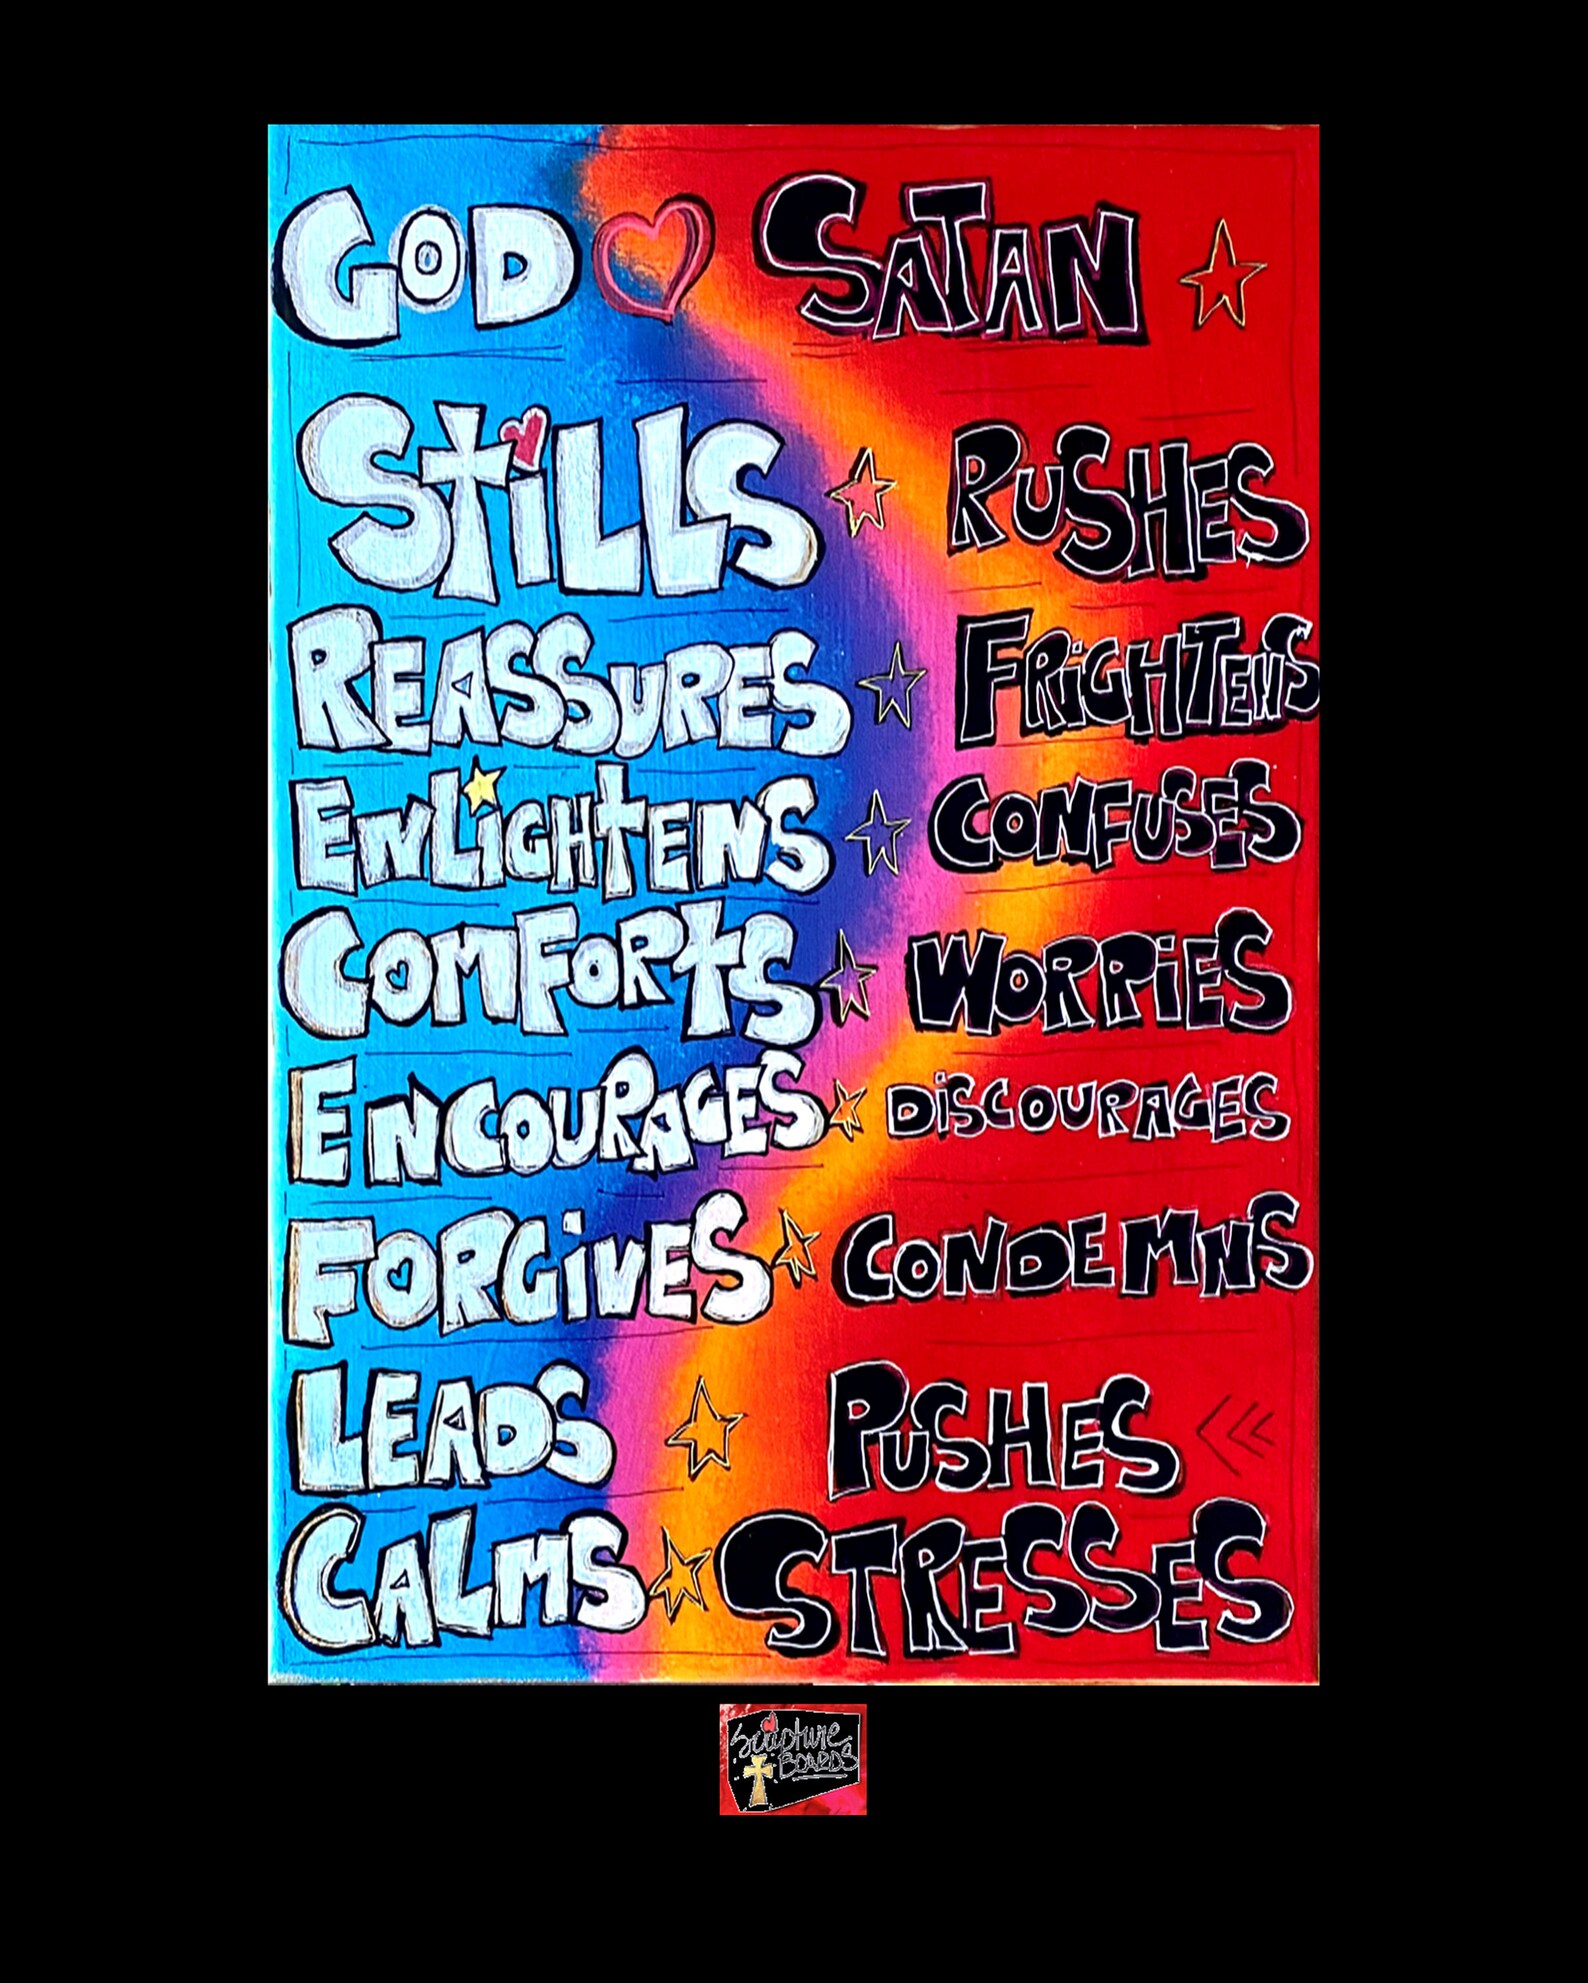 GOD SATAN
StiLLS RUSHES
REASSURES FRiGHTENS
ENLiGHtENS CONFUSES
COMFORtS WORRiES
ENCOURAGES DiSCOURAGES
FORGiVES CONDEMNS
LEADS PUSHES
CALMS STRESSES
Scripture
BOARDS